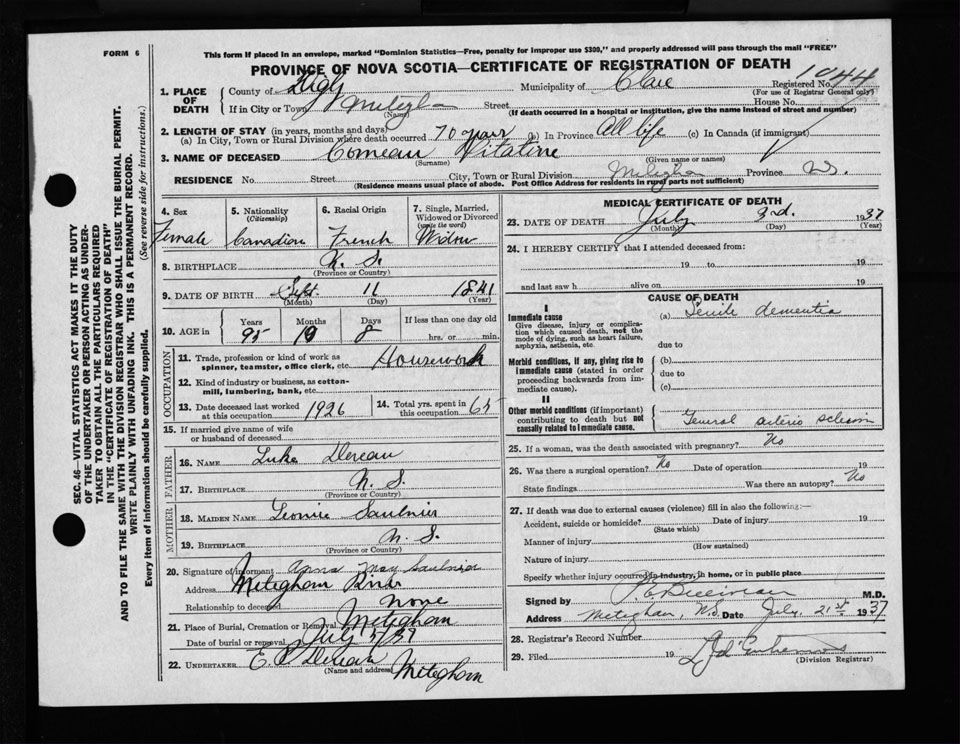 FORM 6
This form if placed in an envelope, marked "Dominion Statistics—Free, penalty for improper use $300," and properly addressed will pass through the mail "FREE"
PROVINCE OF NOVA SCOTIA—CERTIFICATE OF REGISTRATION OF DEATH
1. PLACE OF DEATH
County of Digby Municipality of Clare Registered No. 1044
(For use of Registrar General only)
If in City or Town Street House No.
(Name) (If death occurred in a hospital or institution, give the name instead of street and number)
2. LENGTH OF STAY (in years, months and days)
(a) In City, Town or Rural Division where death occurred 70 years (b) In Province All life (c) In Canada (if immigrant)
3. NAME OF DECEASED Comeau Vitaline
(Surname) (Given name or names)
RESIDENCE No. Street City, Town or Rural Division Province
(Residence means usual place of abode. Post Office Address for residents in rural parts not sufficient)
4. Sex
Female
5. Nationality
(Citizenship)
Canadian
6. Racial Origin
French
7. Single, Married, Widowed or Divorced
(write the word)
Widow
8. BIRTHPLACE N. S.
(Province or Country)
9. DATE OF BIRTH Sept. 11 1841
(Month) (Day) (Year)
10. AGE in Years Months Days If less than one day old
95 8 hrs. or min.
OCCUPATION
11. Trade, profession or kind of work as spinner, teamster, office clerk, etc. Housework
12. Kind of industry or business, as cotton-mill, lumbering, bank, etc.
13. Date deceased last worked at this occupation 1926
14. Total yrs. spent in this occupation 65
15. If married give name of wife or husband of deceased
FATHER
16. NAME Luke
17. BIRTHPLACE N. S.
(Province or Country)
MOTHER
18. MAIDEN NAME Saulnier
19. BIRTHPLACE N. S.
(Province or Country)
20. Signature of informant May Saulnier
Address Meteghan River
Relationship to deceased None
21. Place of Burial, Cremation or Removal Meteghan
Date of burial or removal July 5/37
22. UNDERTAKER Meteghan
(Name and Address)
MEDICAL CERTIFICATE OF DEATH
23. DATE OF DEATH July 3rd. 1937
(Month) (Day) (Year)
24. I HEREBY CERTIFY that I attended deceased from:
19 to 19
and last saw h alive on 19
CAUSE OF DEATH
I
Immediate cause
Give disease, injury or complication which caused death, not the mode of dying, such as heart failure, asphyxia, asthenia, etc.
(a) Senile dementia
due to
Morbid conditions, if any, giving rise to immediate cause (stated in order proceeding backwards from immediate cause).
(b)
due to
(c)
II
Other morbid conditions (if important) contributing to death but not causally related to immediate cause.
General arterio
25. If a woman, was the death associated with pregnancy? No
26. Was there a surgical operation? No Date of operation 19
State findings Was there an autopsy? No
27. If death was due to external causes (violence) fill in also the following:—
Accident, suicide or homicide? Date of injury 19
(State which)
Manner of injury
(How sustained)
Nature of injury
Specify whether injury occurred in industry, in home, or in public place
Signed by M.D.
Address Meteghan, N.S. Date July, 21st 1937
28. Registrar's Record Number
29. Filed 19
(Division Registrar)
SEC. 46— VITAL STATISTICS ACT MAKES IT THE DUTY
OF THE UNDERTAKER OR PERSON ACTING AS UNDER-
TAKER TO OBTAIN ALL THE PARTICULARS REQUIRED
IN THE "CERTIFICATE OF REGISTRATION OF DEATH"
AND TO FILE THE SAME WITH THE DIVISION REGISTRAR WHO SHALL ISSUE THE BURIAL PERMIT.
WRITE PLAINLY WITH UNFADING INK. THIS IS A PERMANENT RECORD.
Every item of information should be carefully supplied. (See reverse side for instructions.)